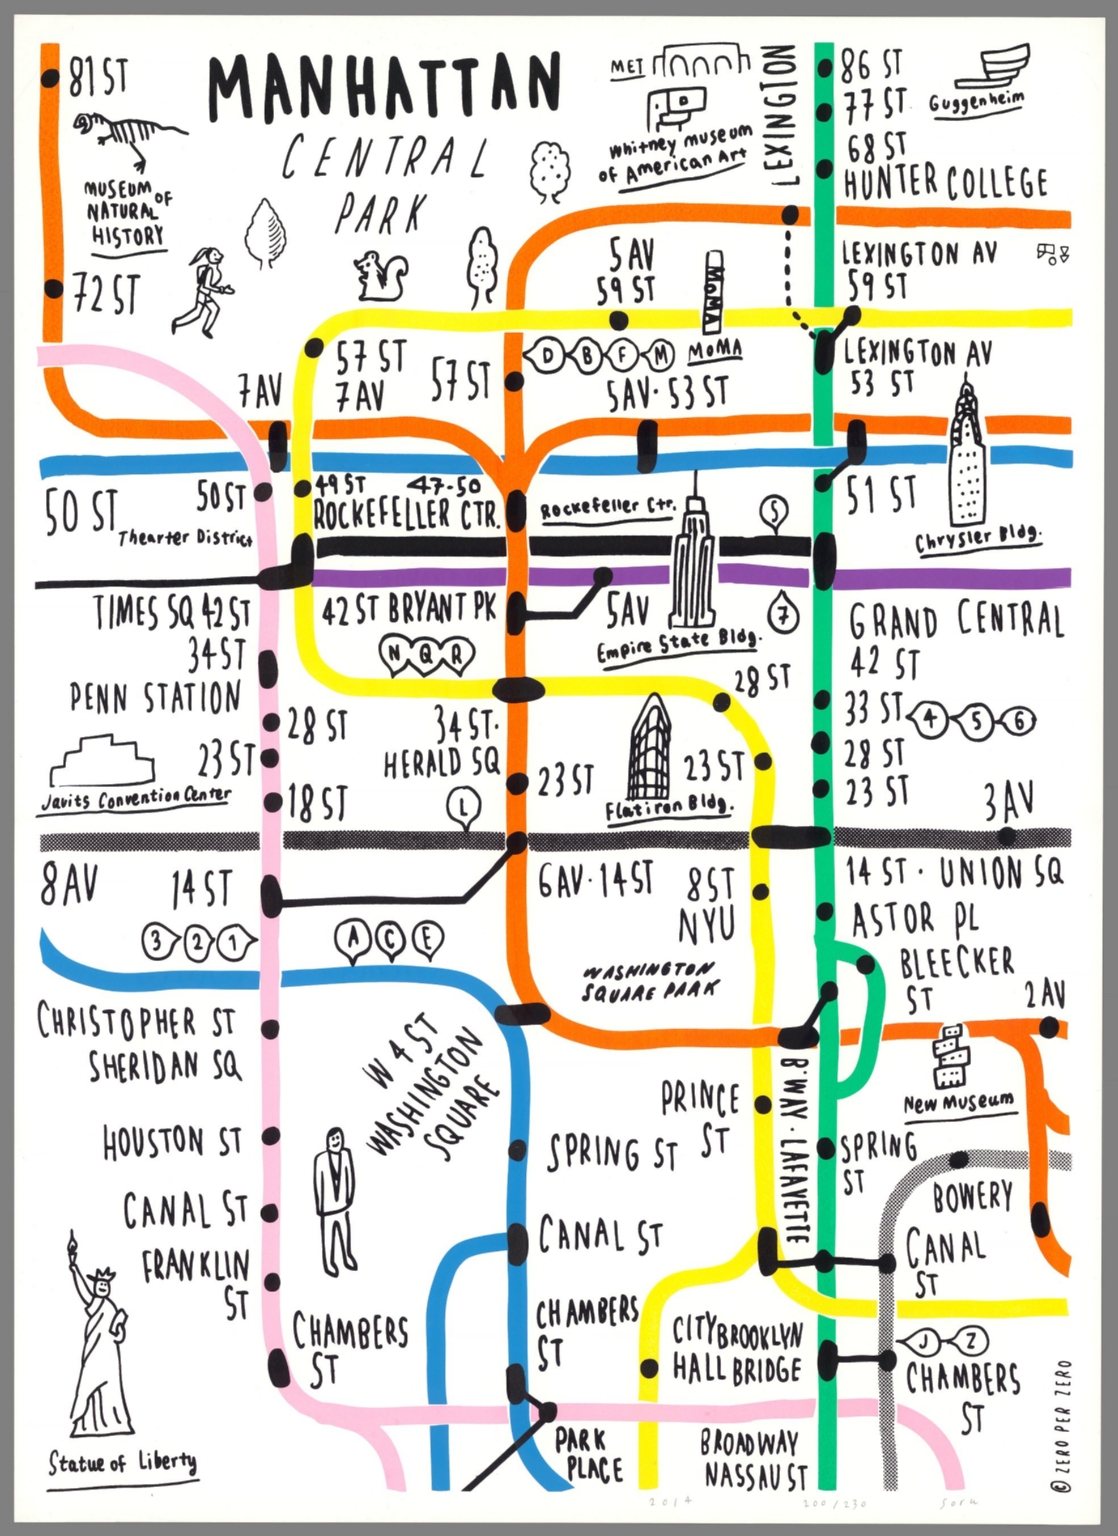 81 ST
MANHATTAN
CENTRAL
PARK
MET
Whitney Museum
of American Art
LEXINGTON
86 ST
77 ST
68 ST
HUNTER COLLEGE
Guggenheim
MUSEUM
OF
NATURAL
HISTORY
72 ST
5 AV
59 ST
MoMA
MoMA
LEXINGTON AV
59 ST
7 AV
57 ST
7 AV
57 ST
D B F M
5 AV · 53 ST
LEXINGTON AV
53 ST
50 ST
50 ST
Thearter District
49 ST
47-50
ROCKEFELLER CTR.
Rockefeller Ctr.
S
51 ST
Chrysler Bldg.
TIMES SQ 42 ST
42 ST BRYANT PK
5 AV
Empire State Bldg.
7
GRAND CENTRAL
42 ST
34 ST
PENN STATION
N Q R
28 ST
28 ST
34 ST·
HERALD SQ
33 ST
4 5 6
28 ST
23 ST
23 ST
Javits Convention Center
18 ST
L
23 ST
Flatiron Bldg.
23 ST
3 AV
8 AV
14 ST
6 AV · 14 ST
8 ST
NYU
14 ST · UNION SQ
ASTOR PL
3 2 1
A C E
WASHINGTON
SQUARE PARK
BLEECKER
ST
2 AV
CHRISTOPHER ST
SHERIDAN SQ
W 4 ST
WASHINGTON
SQUARE
B'WAY · LAFAYETTE
New Museum
PRINCE
ST
HOUSTON ST
SPRING ST
SPRING
ST
BOWERY
CANAL ST
CANAL ST
CANAL
ST
FRANKLIN
ST
CHAMBERS
ST
CHAMBERS
ST
CITY
HALL
BROOKLYN
BRIDGE
J Z
CHAMBERS
ST
Statue of Liberty
PARK
PLACE
BROADWAY
NASSAU ST
© ZERO PER ZERO
2014
200/230